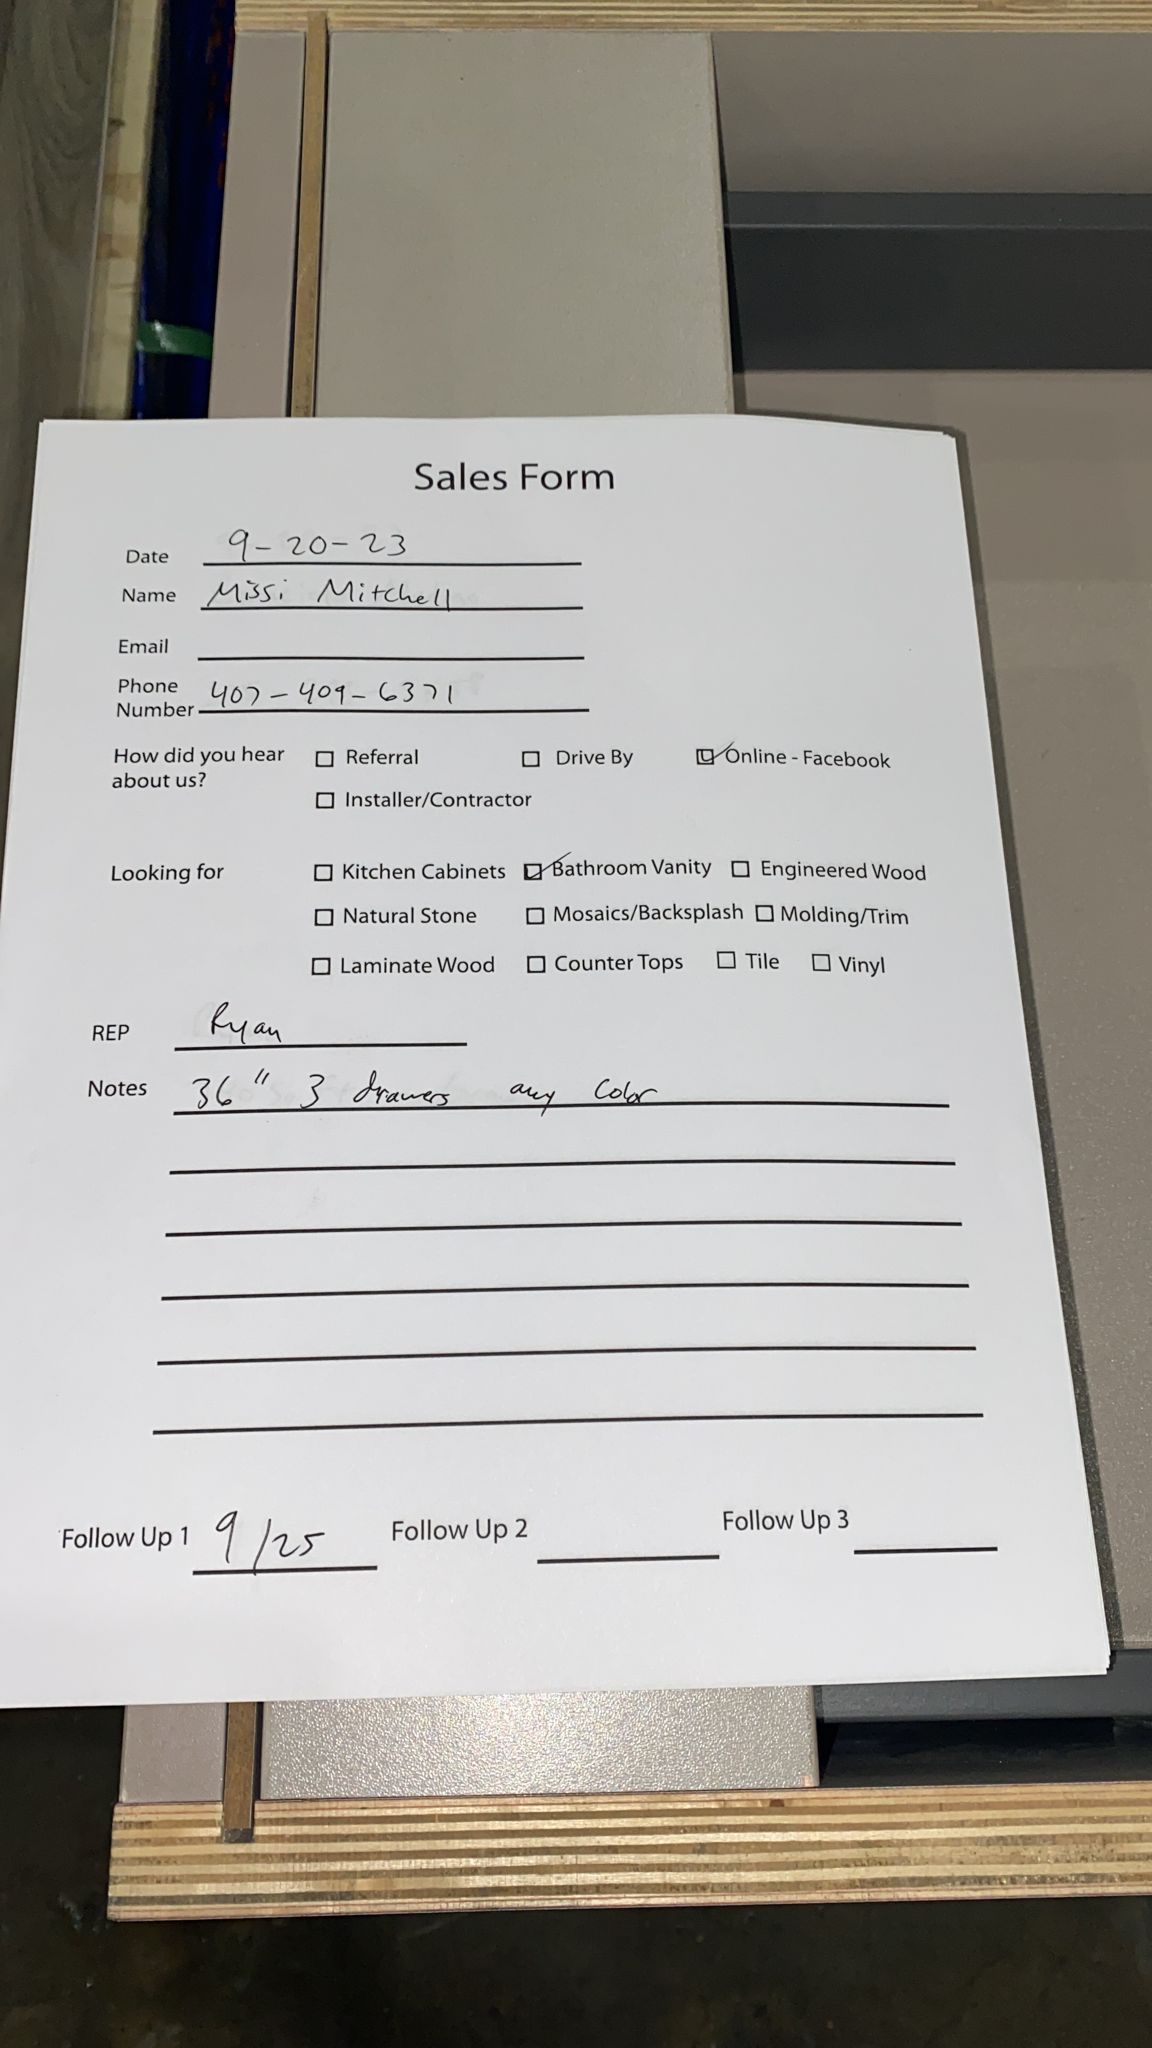 Sales Form
Date 9-20-23
Name Missi Mitchell
Email
Phone Number 407-409-6371
How did you hear about us? ☐ Referral ☐ Drive By ☑ Online - Facebook
☐ Installer/Contractor
Looking for ☐ Kitchen Cabinets ☑ Bathroom Vanity ☐ Engineered Wood
☐ Natural Stone ☐ Mosaics/Backsplash ☐ Molding/Trim
☐ Laminate Wood ☐ Counter Tops ☐ Tile ☐ Vinyl
REP Ryan
Notes 36" 3 drawers any color
Follow Up 1 9/25 Follow Up 2 Follow Up 3